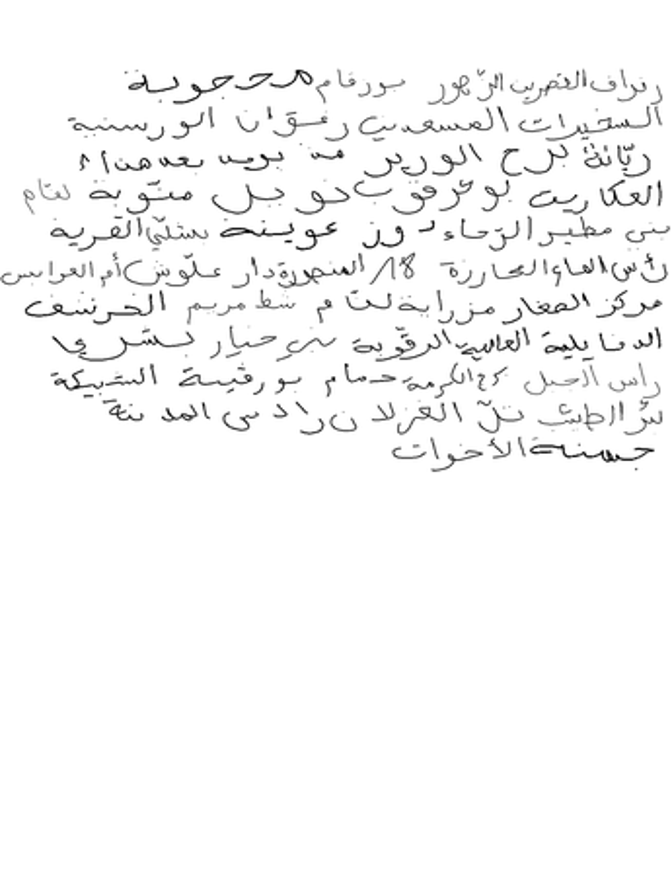 زقراف القصرين الزهور بورقام محجوبة
السخيرات المسعدين رضوان الورسنية
ريّانة برج الوزير من يوسف بعد هذا
العكاريت بوعرقوب دوبل متوبة لتام
بني مطير الرّحاء دوز عوينة ستلّي القرية
رأس الماء المحارزة 18 المنصورة دار علّوش أم العرايس
مركز الصغار مزراية لتام شط مريم الخرشف
الدخايلية العالية الرقّوبة بني خيار بشري
راس الجبل برج الكرمة حمام بورقيبة الشبيكة
بئر الطيش تلّ الغزلان رادس المدينة
حسنة الأخوات